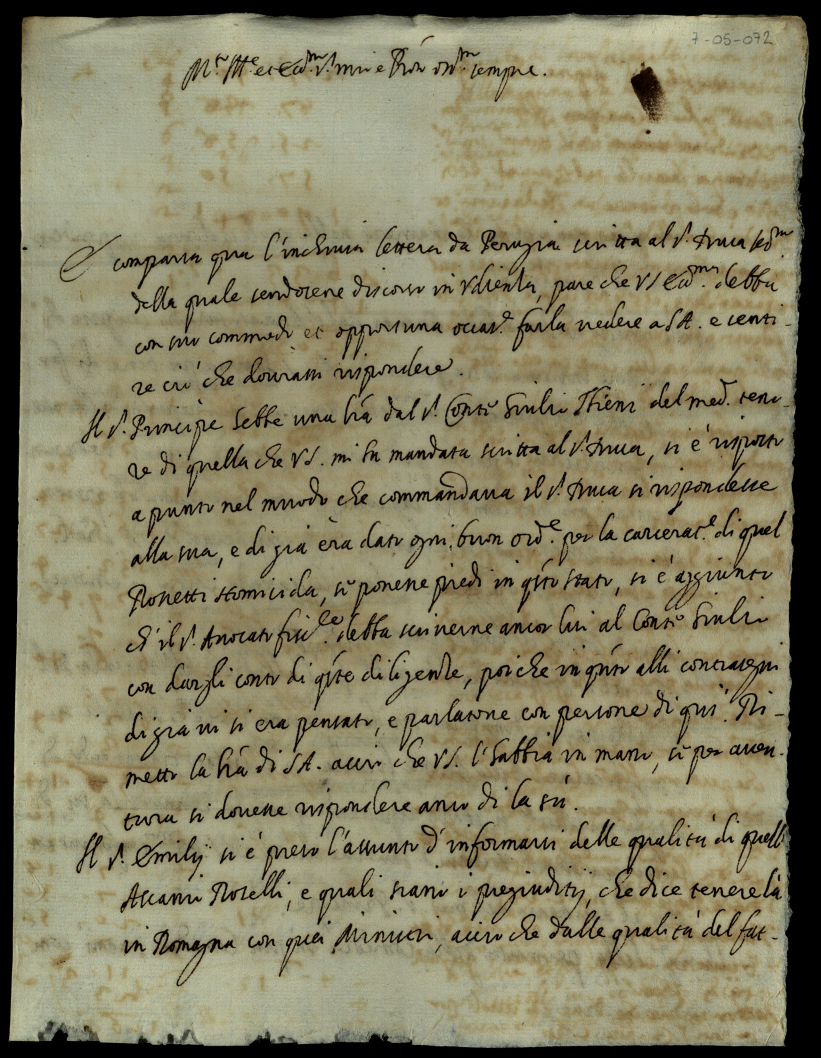 7-05-072
M.to Ill.re et Ecc.mo S.r mio e P'ron oss.mo sempre.
È comparsa qua l'inchiusa lettera da Perugia scritta al S.r Duca Ser.mo
della quale sendosene discorso in Udienza, pare che VS Ecc.ma debba
con suo commodo et opportuna occas.e farla vedere a SA. e senti-
re ciò che dourassi rispondere.
Il S.r Principe hebbe una l'ra dal S.r Conte Giulio Thieni del med.o teno-
re di quella che VS. mi ha mandata scritta al S.r Duca, si è risposto
a punto nel muodo che commandaua il S.r Duca si rispondesse
alla sua, e di già èra dato ogni buon ord.e per la carcerat.e di quel
Homicida, se ponesse piedi in q'sto stato, si è aggiunto
ch'il S.r Auocato fisc.le debba scriuerne ancor lui al Conte Giulio
con dargli conto di q'ste diligenze, poiche in q'nto alli contrasegni
di già ui si era pensato, e parlatone con persone di qui. Ri-
metto la l'ra di SA. acciò che VS. l'habbia in mano, se per auen-
tura si douesse rispondere anco di la sù.
Il S.r Emilij si è preso l'assunto d'informarsi delle qualità di quell
Ascanio Roselli, e quali siano i pregiuditij, che dice tenere là
in Romagna con quei Ministri, acciò che dalle qualità del fat-